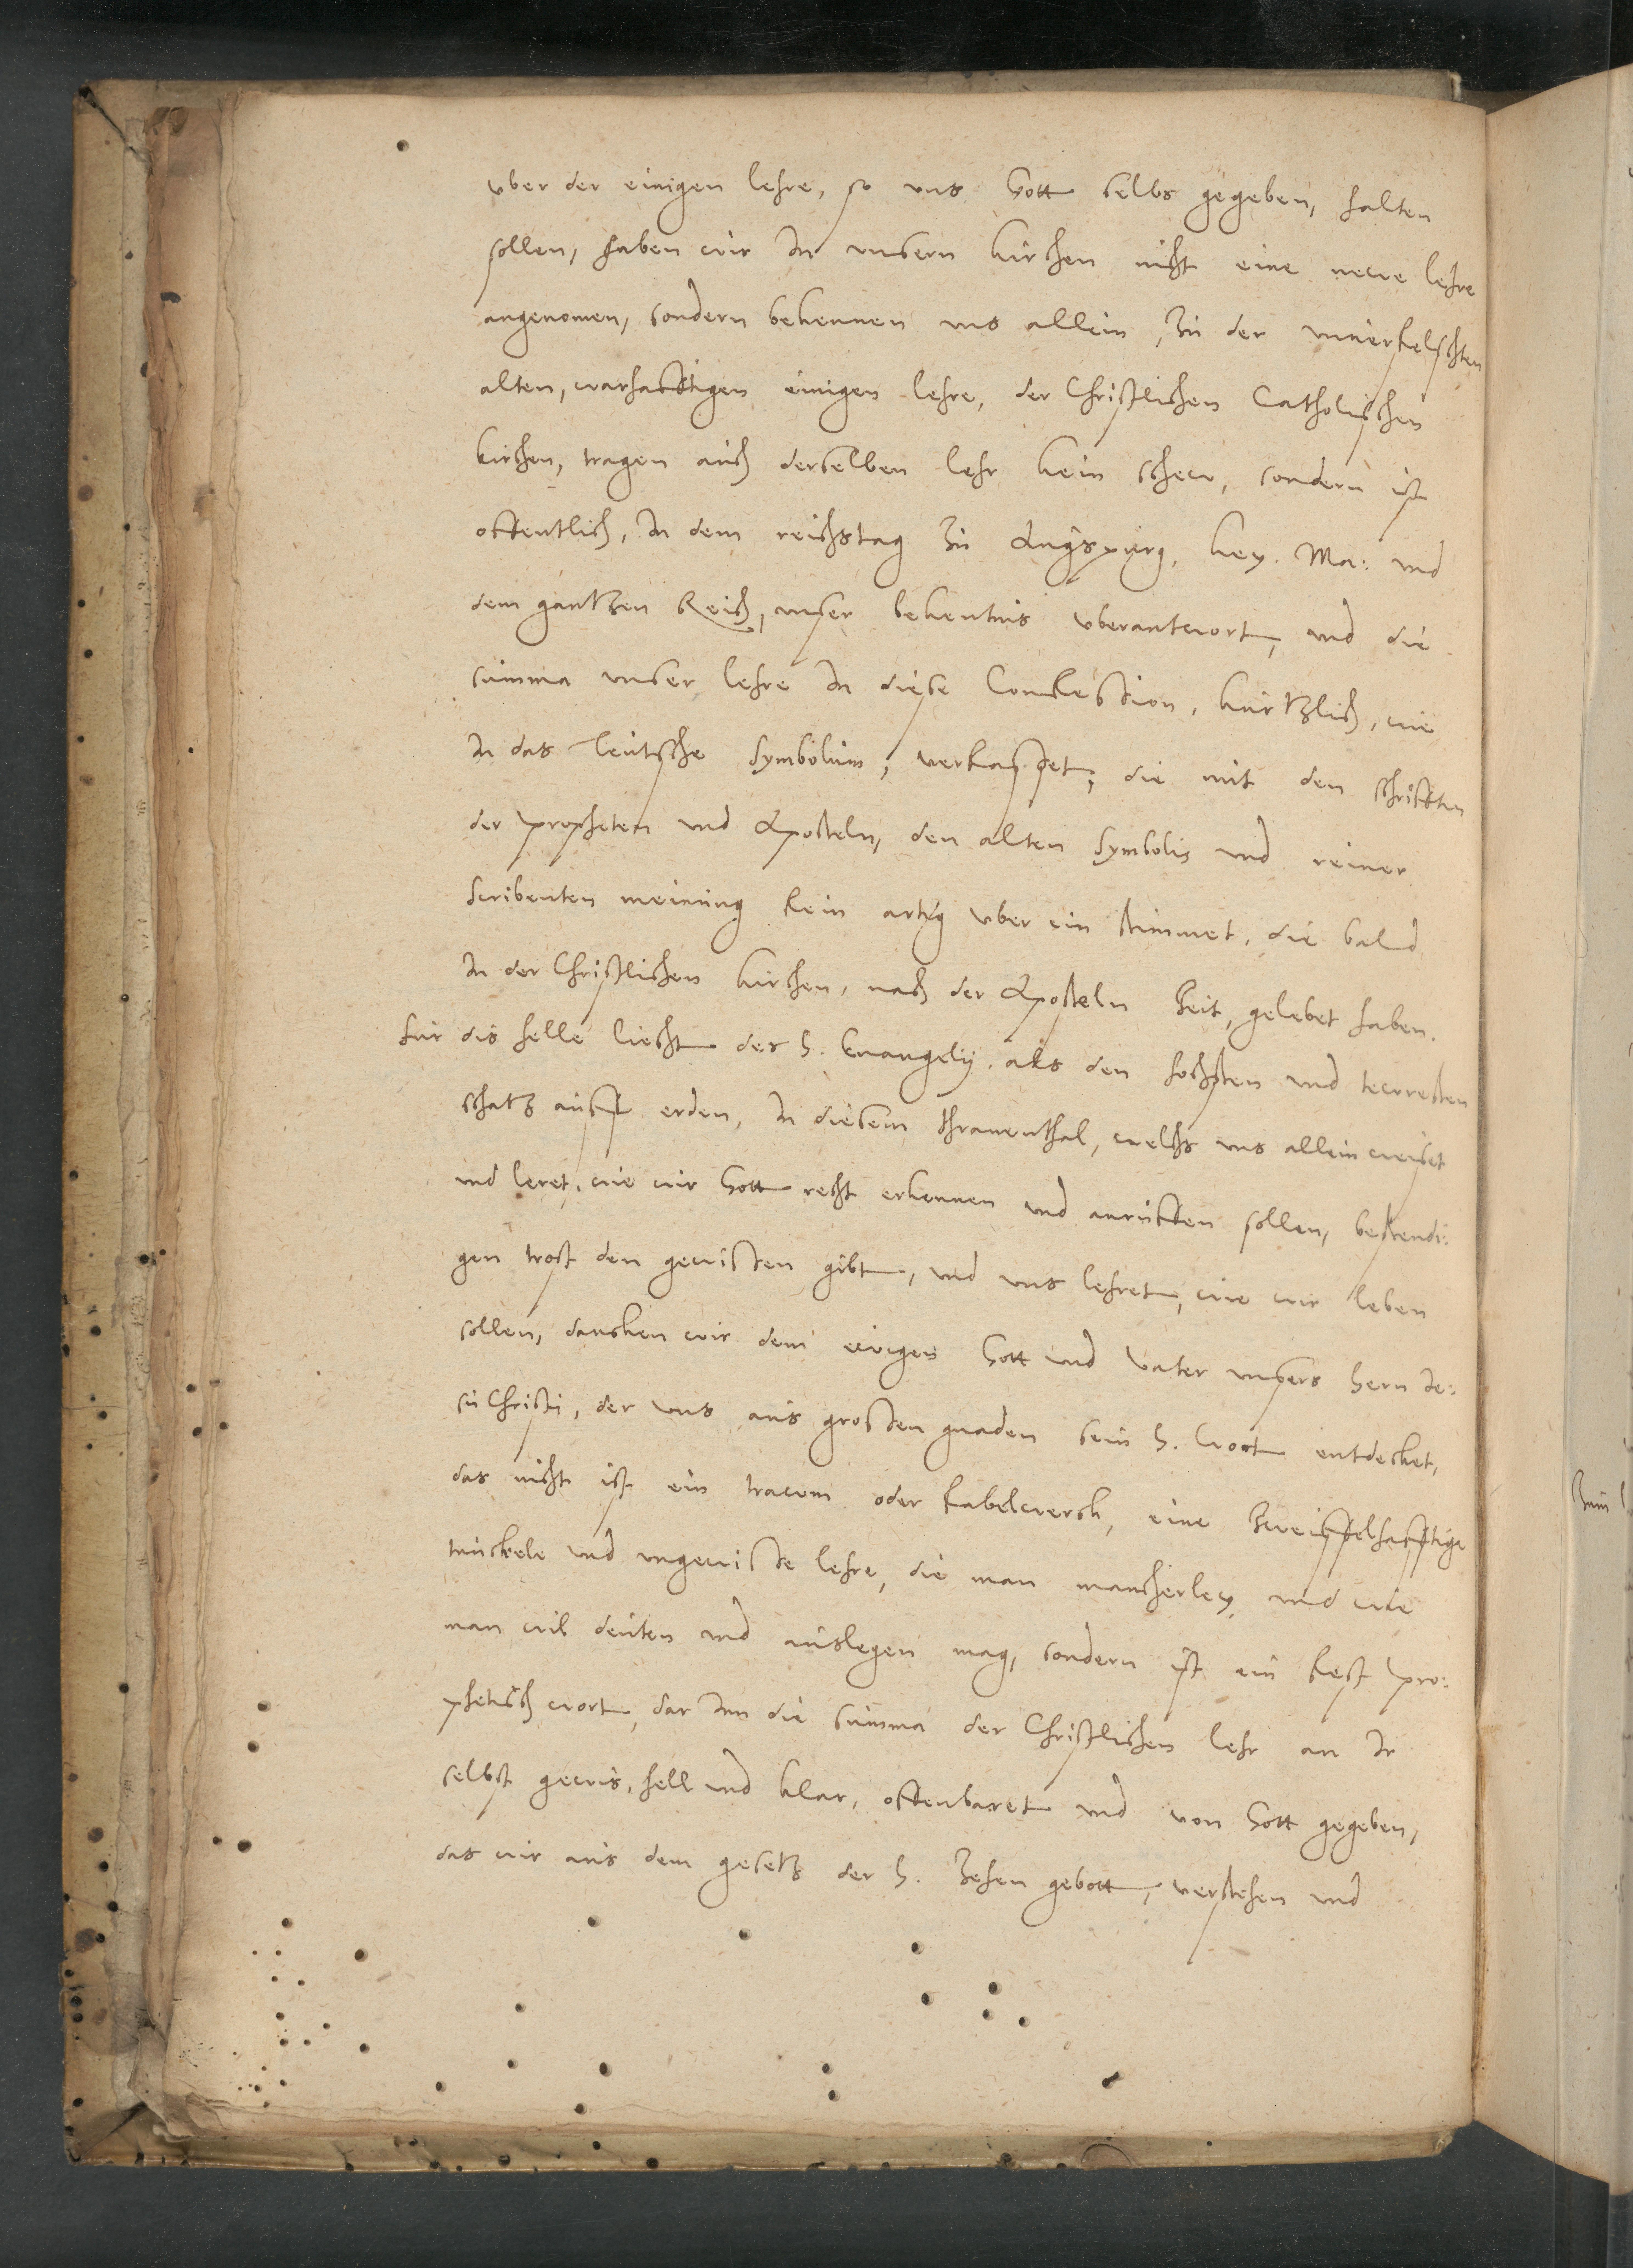 vber der einigen lehre, so vns Gott selbs gegeben, halten
sollen, haben wir In vnsern kirchen nicht eine newe lehre
angenomen, sondern bekennen vns allein, zu der vnuerfelschten
alten, warhafftigen einigen lehre, der Christlichen Catholischen
kirchen, tragen auch derselben lehr kein schew, sondern ist
offentlich, In dem reichstag zu Augspurg, key. Ma: vnd
dem gantzen Reich, vnser bekentnis vberantwort, vnd die
summa vnser lehre In diese Confession, kurtzlich, wie
In das teutsche Symbolum, verfasset, die mit den schrifften
der propheten vnd Aposteln, den alten Symbolis vnd reiner
Scribenten meinung fein artig vber ein stimmet, die bald
In der Christlichen kirchen, nach der Aposteln Zeit, gelebet haben.
fur dis helle liecht des H. Euangelij, als den hochsten vnd tewresten
schatz auff erden, In diesem thranenthal, welchs vns allein weiset
vnd leret, wie wir Gott recht erkennen vnd anruffen sollen, bestendi:
gen trost den gewissen gibt, vnd vns lehret, wie wir leben
sollen, dancken wir dem ewigen Gott vnd Vater vnsers Hern Je:
su Christi, der vns aus grossen gnaden sein H. Wort entdecket,
das nicht ist ein trawm oder fabelwerck, eine zweiffelhafftige
tunckele vnd vngewisse lehre, die man mancherley, vnd wie
man wil deuten vnd auslegen mag, sondern ist ein fest pro:
phetisch wort, dar Inn die summa der Christlichen lehr an Ir
selbst gewis, hell vnd klar, offenbaret vnd von Gott gegeben,
das wir aus dem gesetz der H. Zehen gebott, verstehen vnd